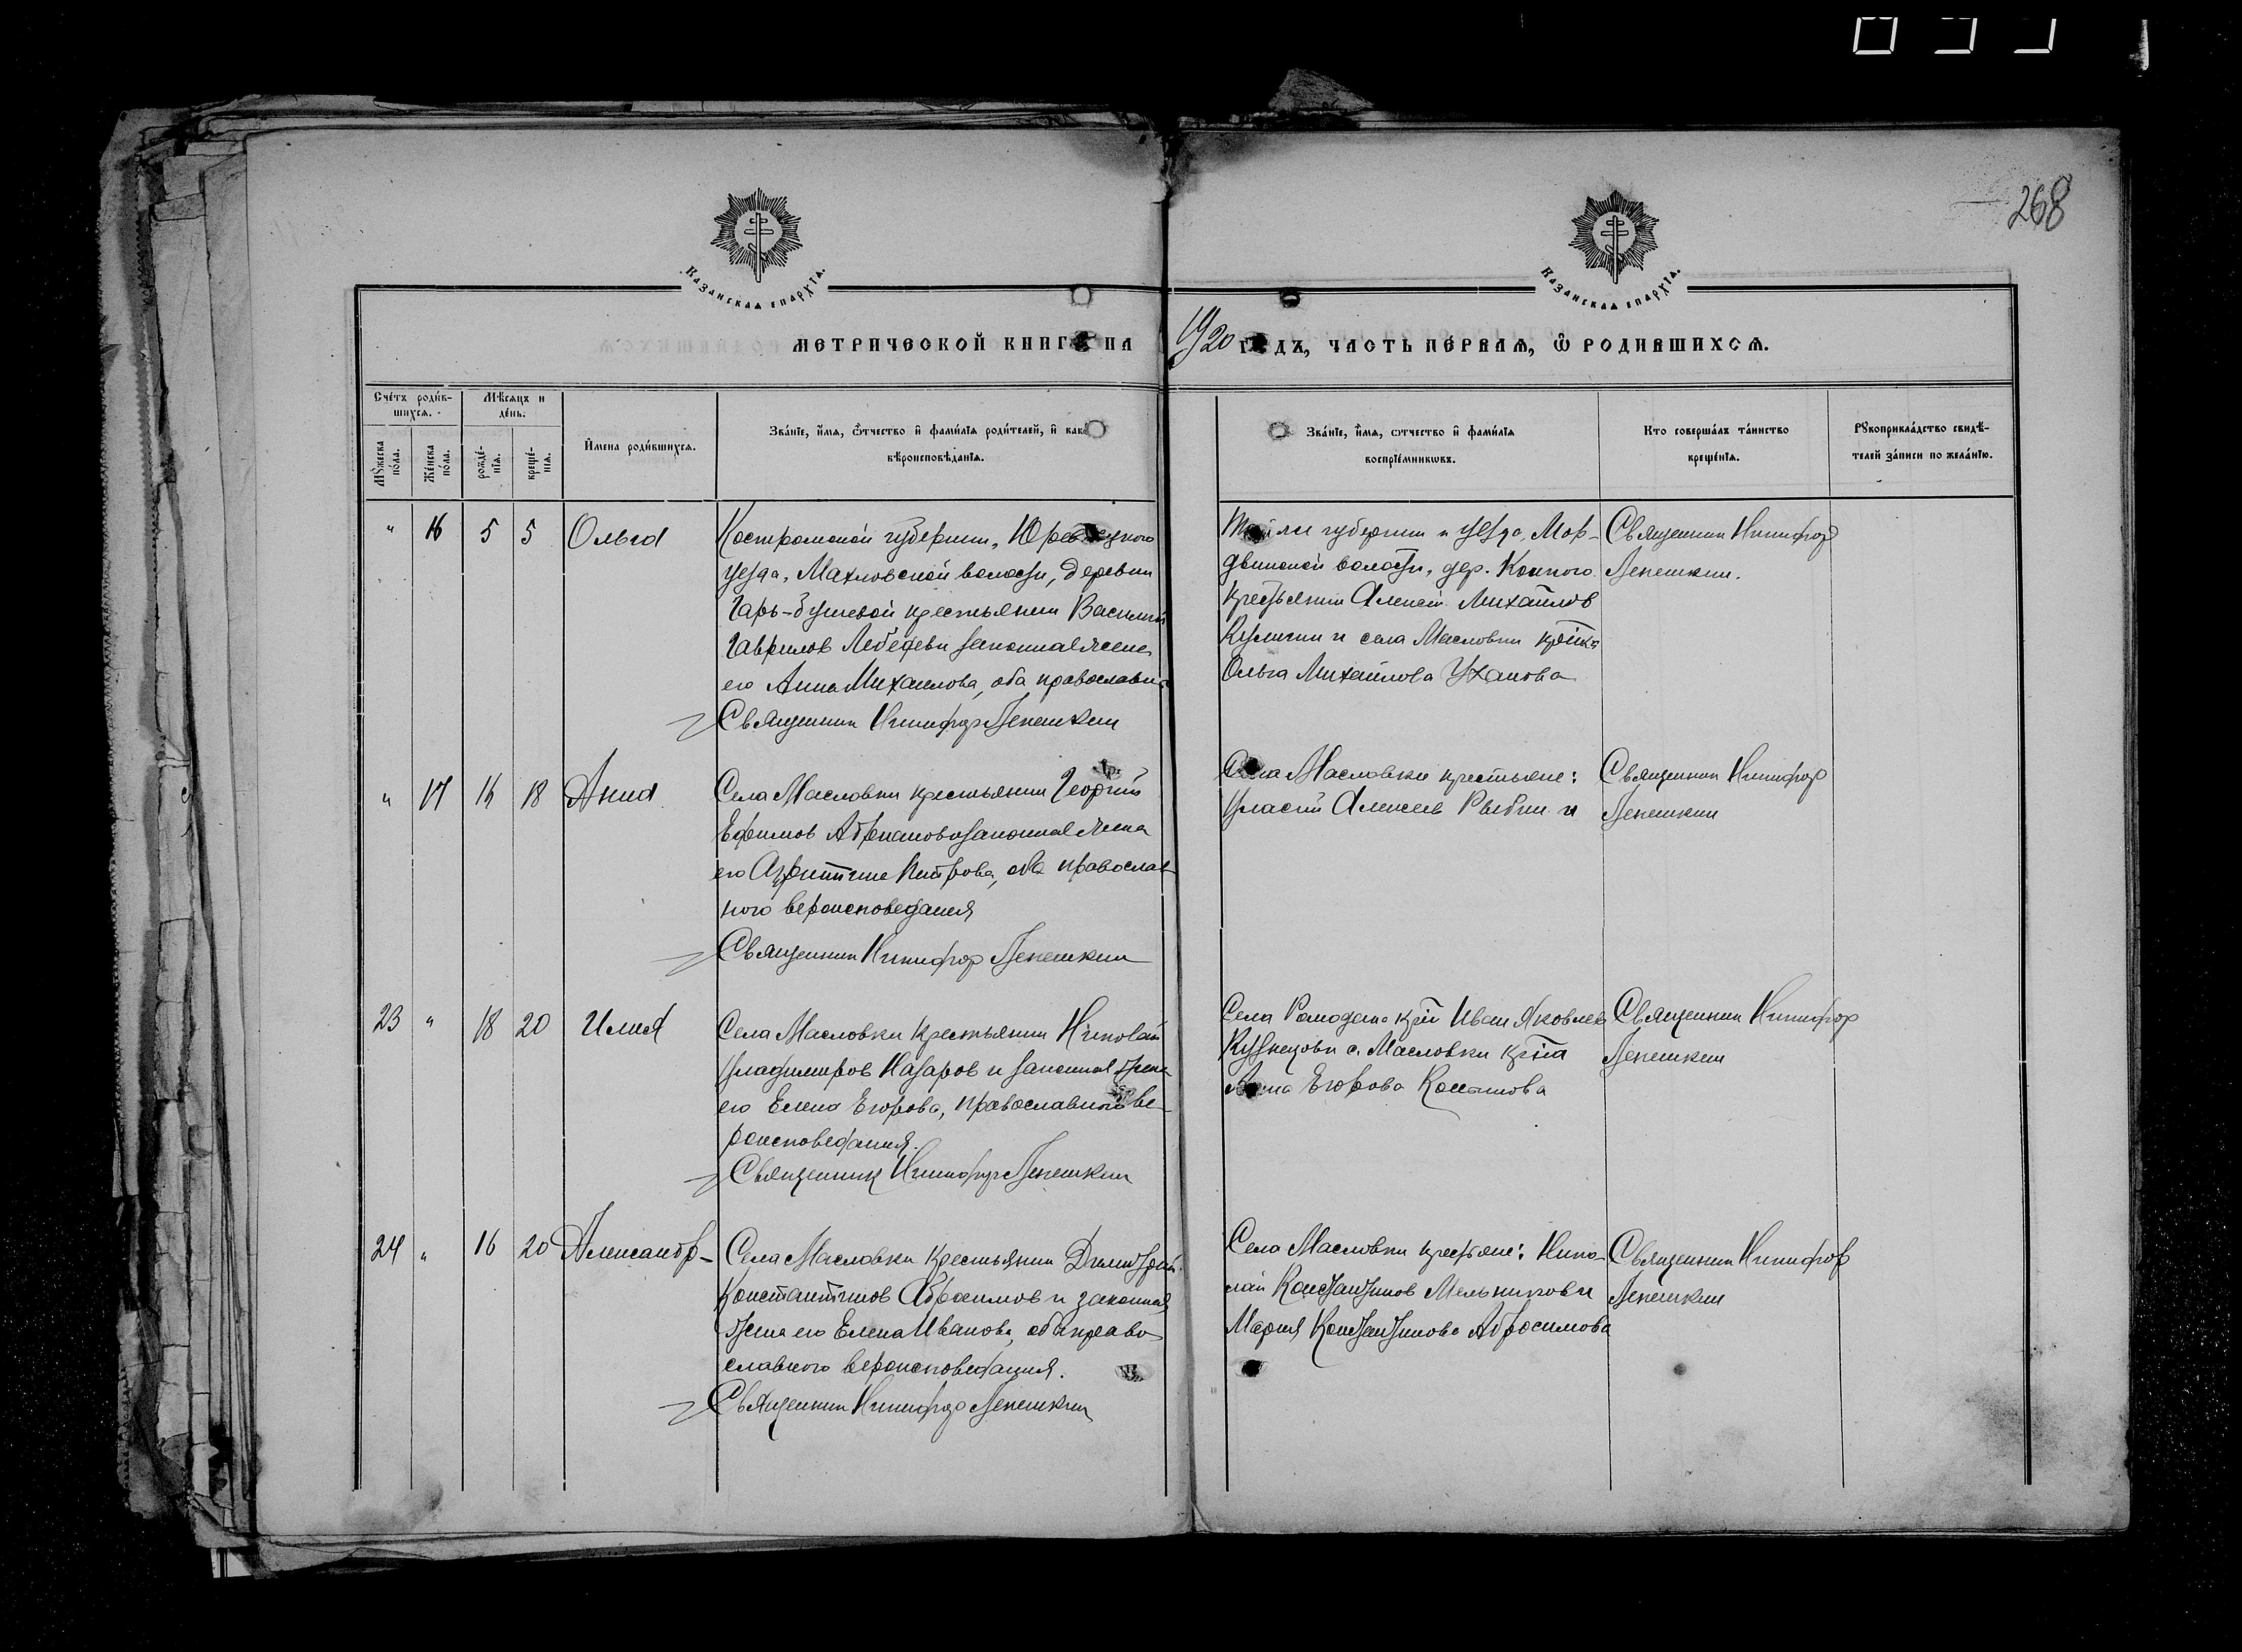 268
КАЗАНСКАЯ ЕПАРХІЯ.
КАЗАНСКАЯ ЕПАРХІЯ.
МЕТРИЧЕСКОЙ КНИГ НА 1920 ГОДЪ, ЧАСТЬ ПЕРВАЯ, Ѡ РОДИВШИХСЯ.
Счетъ родив-
шихся.
Мѣсяцъ и
день.
Мꙋжеска
пола.
Женска
пола.
рожде-
нїя.
креще-
нїя.
Имена родившихся.
Званїе, имя, ѻтчество и фамилїя родителей, и как
вѣроисповѣданїя.
Званїе, имя, ѻтчество и фамилїя
воспрїемникѡвъ.
Кто совершалъ таинство
крещенїя.
Рꙋкоприкладство свидѣ-
телей записи по желанїю.
" 16 5 5 Ольга
Костромской губернии, Юрьевецкого
уезда, Махловской волости, деревни
Гарь- крестьянин Василий
Гаврилов Лебедев и законная жена
его Анна Михаилова, оба православн.
Священник Никифор Лепешкин
губернии и уезда, Мор-
двинской волости, дер. Конного
крестьянин Алексей Михайлов
Кулигин и села Масловки кр-ка
Ольга Михайлова Уханова
Священник Никифор
Лепешкин.
" 17 18 Анна
Села Масловки крестьянин Георгий
Ефимов Абрамов и законная жена
его Петрова, оба православ
ного вероисповедания
Священник Никифор Лепешкин
Села Масловки крестьяне:
Власий Алексеев Рыбин и
Священник Никифор
Лепешкин
23 " 18 20 Илия
Села Масловки крестьянин Николай
Владимиров Назаров и законная жена
его Елена Егорова, православного ве-
роисповедания.
Священник Никифор Лепешкин
Села Ромодана кр-н Иван Яковлев
Кузнецов и с. Масловки кр-ка
Анна Егорова
Священник Никифор
Лепешкин
24 " 16 20 Александр
Села Масловки крестьянин Димитрий
Константинов Абросимов и законная
жена его Елена Иванова, оба право
славного вероисповедания.
Священник Никифор Лепешкин
Села Масловки крестьяне: Нико-
лай Константинов Мельников и
Мария Константинова Абросимова
Священник Никифор
Лепешкин